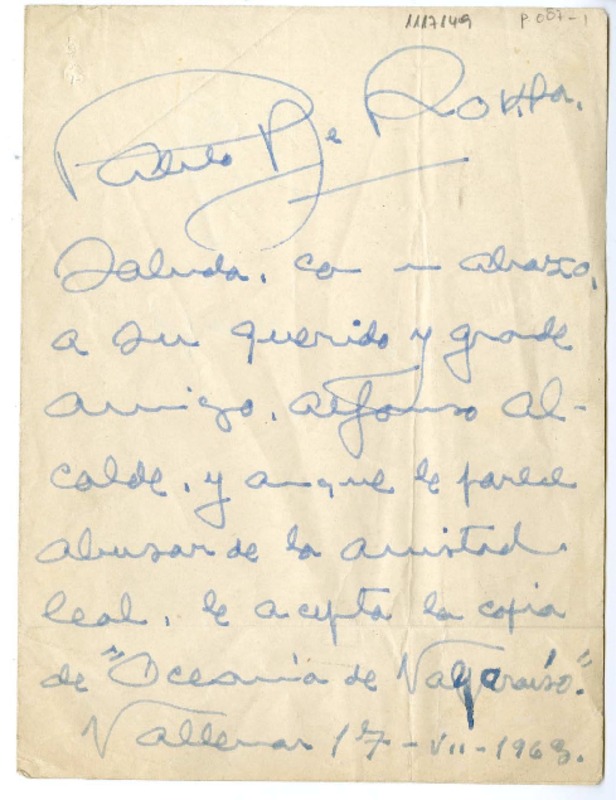 1117149 P.087-1
Pablo De Rokha.
Saluda, con un abrazo,
a su querido y grande
amigo, Alfonso Al-
calde, y aunque le parece
abusar de la amistad
leal, le acepta la copia
de "Oceanía de Valparaíso."
Vallenar 17-VII-1963.